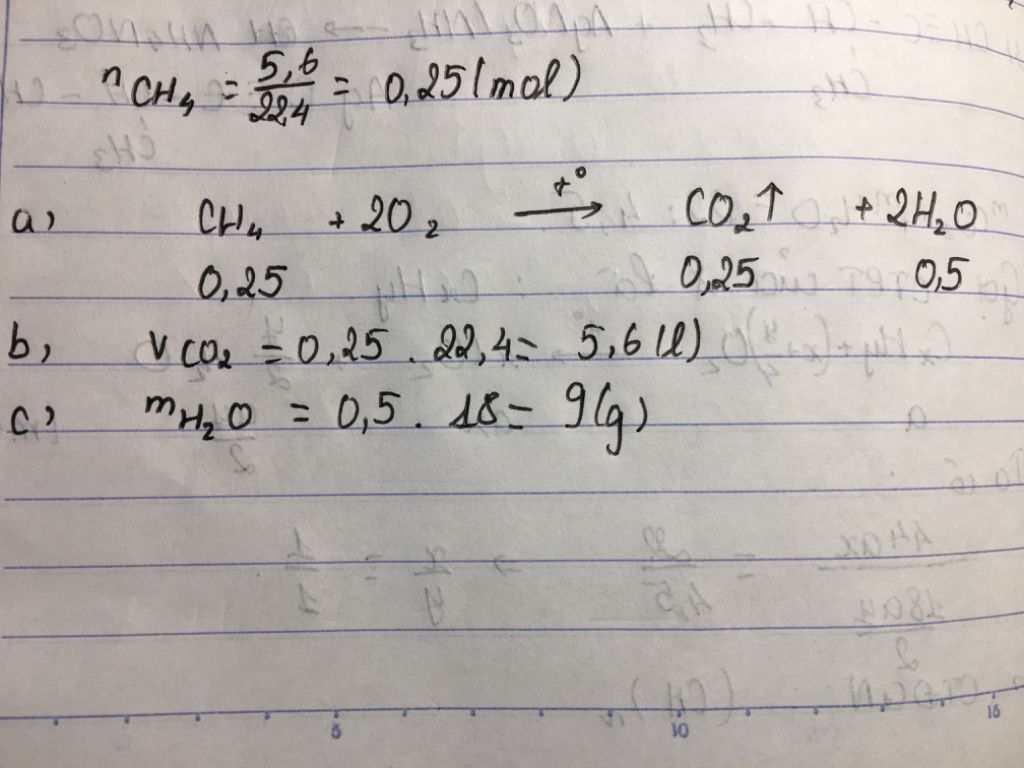 nCH₄ = 5,6/22,4 = 0,25 (mol)
a, CH₄ + 2O₂ —t°→ CO₂↑ + 2H₂O
0,25 0,25 0,5
b, VCO₂ = 0,25 . 22,4 = 5,6 (l)
c, mH₂O = 0,5 . 18 = 9 (g)
5 10 15